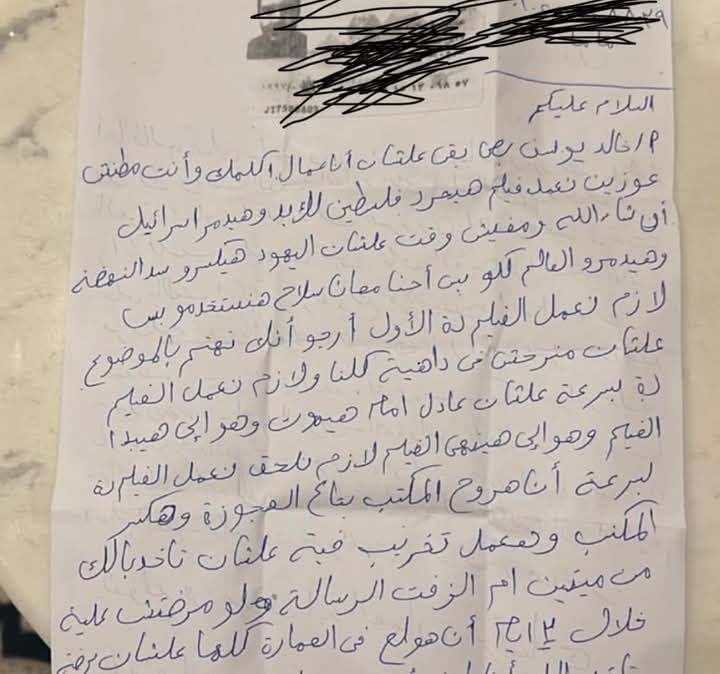 السلام عليكم
م/ خالد يوسف بص بقى علشان أنا عمال اكلمك وأنت مطنش
عوزين نعمل فيلم هيحرر فلسطين للأبد وهيدمر اسرائيل
أن شاء الله ومفيش وقت علشان اليهود هيكسرو سد النهضة
وهيدمرو العالم كلو بس أحنا معانا سلاح هنستخدمو بس
لازم نعمل الفيلم دة الأول أرجو أنك تهتم بالموضوع
علشان منرحش فى داهية كلنا ولازم نعمل الفيلم
دة بسرعة علشان عادل امام هيموت وهو إلى هيبدأ
الفيلم وهو إلى هينهى الفيلم لازم نلحق نعمل الفيلم دة
بسرعة أنا هروح المكتب بتاع العجوزة وهكسر
المكتب وهعمل تخريب فية علشان تاخد بالك
من ميتين ام الزفت الرسالة ولو مرضتش علية
خلال ٢ ايام أنا هولع فى العمارة كلها علشان